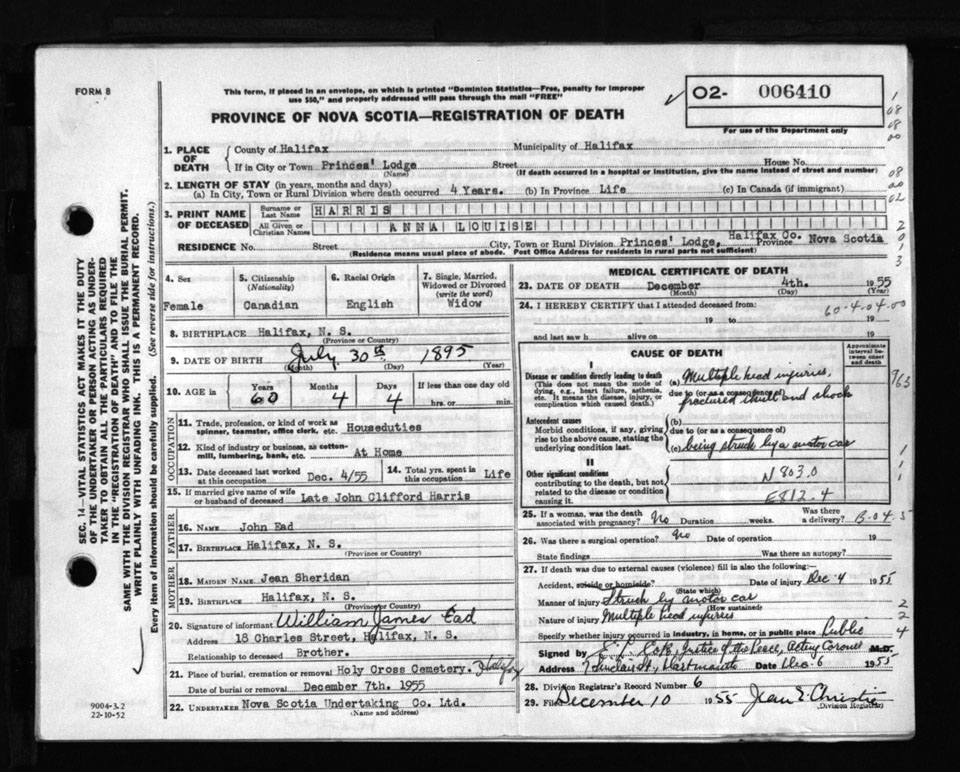 FORM 8
This form, if placed in an envelope, on which is printed "Dominion Statistics—Free, penalty for improper
use $50," and properly addressed will pass through the mail "FREE"
PROVINCE OF NOVA SCOTIA—REGISTRATION OF DEATH
O2- 006410
For use of the Department only
1. PLACE OF DEATH
County of Halifax Municipality of Halifax
If in City or Town Princes' Lodge Street House No.
(Name) (If death occurred in a hospital or institution, give the name instead of street and number)
2. LENGTH OF STAY (in years, months and days)
(a) In City, Town or Rural Division where death occurred 4 Years. (b) In Province Life (c) In Canada (if immigrant)
3. PRINT NAME OF DECEASED
Surname or Last Name HARRIS
All Given or Christian Names ANNA LOUISE
RESIDENCE No. Street City, Town or Rural Division Princes' Lodge, Halifax Co. Province Nova Scotia
(Residence means usual place of abode. Post Office Address for residents in rural parts not sufficient)
4. Sex
Female
5. Citizenship
(Nationality)
Canadian
6. Racial Origin
English
7. Single, Married, Widowed or Divorced
(write the word)
Widow
8. BIRTHPLACE Halifax, N. S.
(Province or Country)
9. DATE OF BIRTH July 30th 1895
(Month) (Day) (Year)
10. AGE in Years Months Days If less than one day old
60 4 4 hrs. or min.
OCCUPATION
11. Trade, profession, or kind of work as spinner, teamster, office clerk, etc. Houseduties
12. Kind of industry or business, as cotton-mill, lumbering, bank, etc. At Home
13. Date deceased last worked at this occupation Dec. 4/55
14. Total yrs. spent in this occupation Life
15. If married give name of wife or husband of deceased Late John Clifford Harris
FATHER
16. NAME John Ead
17. BIRTHPLACE Halifax, N. S.
(Province or Country)
MOTHER
18. MAIDEN NAME Jean Sheridan
19. BIRTHPLACE Halifax, N. S.
(Province or Country)
20. Signature of informant William James Ead
Address 18 Charles Street, Halifax, N. S.
Relationship to deceased Brother.
21. Place of burial, cremation or removal Holy Cross Cemetery. Halifax
Date of burial or removal December 7th. 1955
22. UNDERTAKER Nova Scotia Undertaking Co. Ltd.
(Name and address)
MEDICAL CERTIFICATE OF DEATH
23. DATE OF DEATH December 4th. 1955
(Month) (Day) (Year)
24. I HEREBY CERTIFY that I attended deceased from:
60-4-04.00
19 to 19
and last saw h alive on 19
CAUSE OF DEATH
Approximate interval between onset and death
I
Disease or condition directly leading to death
(This does not mean the mode of dying, e.g., heart failure, asthenia, etc. It means the disease, injury, or complication which caused death.)
(a) Multiple head injuries,
due to (or as a consequence of)
fractured skull and shock
Antecedent causes
Morbid conditions, if any, giving rise to the above cause, stating the underlying condition last.
(b)
due to (or as a consequence of)
(c) being struck by a motor car
II
Other significant conditions
contributing to the death, but not related to the disease or condition causing it.
N 803.0
E812.4
963
25. If a woman, was the death associated with pregnancy? No Duration weeks. Was there a delivery?
26. Was there surgical operation? No Date of operation 19
State findings Was there an autopsy?
27. If death was due to external causes (violence) fill in also the following:
Accident, suicide or homicide? Date of injury Dec. 4 1955
(State which)
Manner of injury Struck by motor car
(How sustained)
Nature of injury Multiple head injuries
Specify whether injury occurred in industry, in home, or in public place Public
Signed by Justice of the Peace, Acting Coroner M.D.
Address 7 Sinclair St, Dartmouth Date Dec. 6 1955
28. Division Registrar's Record Number 6
29. Filed December 10 1955 Jean E. Christie
(Division Registrar)
SEC. 14—VITAL STATISTICS ACT MAKES IT THE DUTY
OF THE UNDERTAKER OR PERSON ACTING AS UNDER-
TAKER TO OBTAIN ALL THE PARTICULARS REQUIRED
IN THE "REGISTRATION OF DEATH" AND TO FILE THE
SAME WITH THE DIVISION REGISTRAR WHO SHALL ISSUE THE BURIAL PERMIT.
WRITE PLAINLY WITH UNFADING INK. THIS IS A PERMANENT RECORD.
Every item of information should be carefully supplied. (See reverse side for instructions.)
9004-3.2
22-10-52